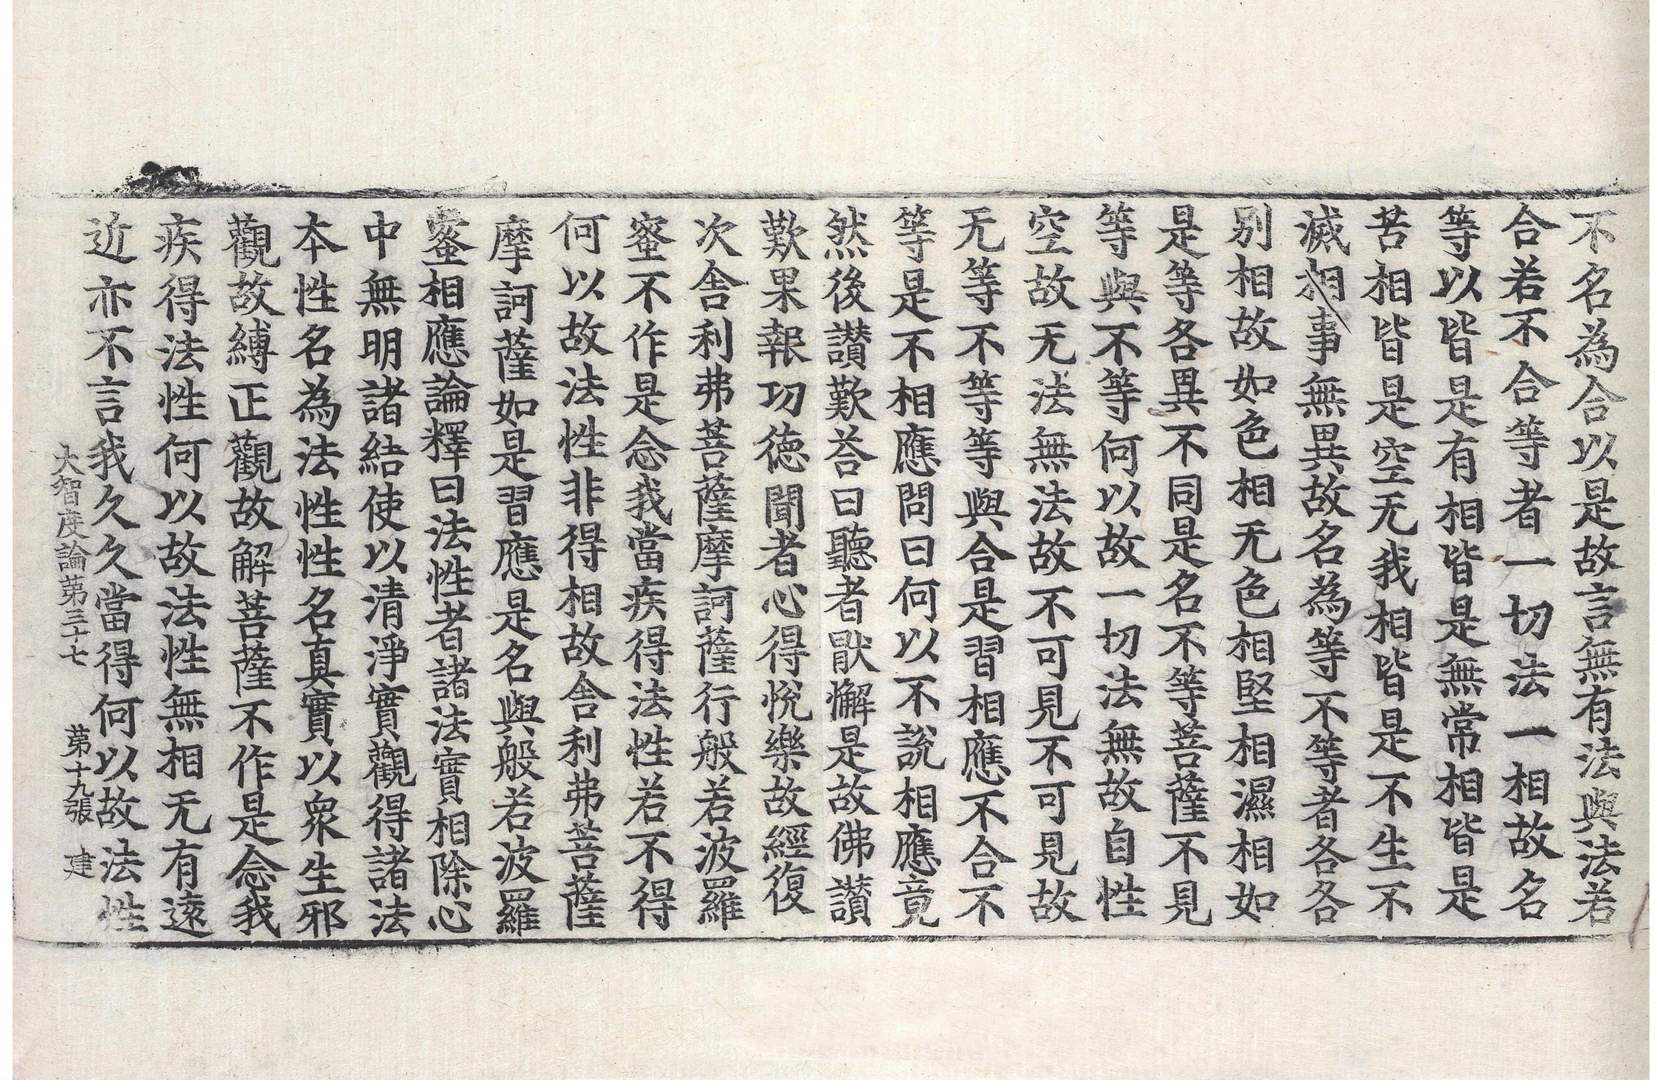 不名為合以是故言無有法與法若
合若不合等者一切法一相故名
等以皆是有相皆是無常相皆是
苦相皆是空无我相皆是不生不
滅相事無異故名為等不等者各各
別相故如色相无色相堅相濕相如
是等各異不同是名不等菩薩不見
等與不等何以故一切法無故自性
空故无法無法故不可見不可見故
无等不等等與合是習相應不合不
等是不相應問曰何以不說相應竟
然後讃歎荅曰聽者猒懈是故佛讃
歎果報功德聞者心得悅樂故經復
次舍利弗菩薩摩訶薩行般若波羅
蜜不作是念我當疾得法性若不得
何以故法性非得相故舍利弗菩薩
摩訶薩如是習應是名與般若波羅
蜜相應論釋曰法性者諸法實相除心
中無明諸結使以清淨實觀得諸法
本性名為法性性名真實以衆生邪
觀故縛正觀故解菩薩不作是念我
疾得法性何以故法性無相无有遠
近亦不言我久久當得何以故法性
大智度論第三十七 第十九張 建